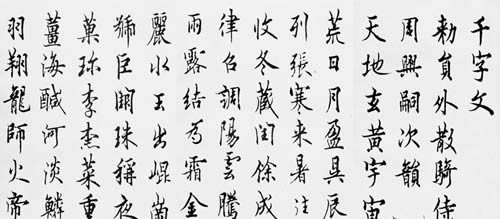 千字文
勑員外散騎侍
周興嗣次韻
天地玄黃宇宙
荒日月盈昃辰
列張寒来暑往
收冬藏閏餘成
律召調陽雲騰
雨露結為霜金
麗水玉出崐崗
號巨闕珠稱夜
菓珍李柰菜重
薑海鹹河淡鱗
羽翔龍師火帝